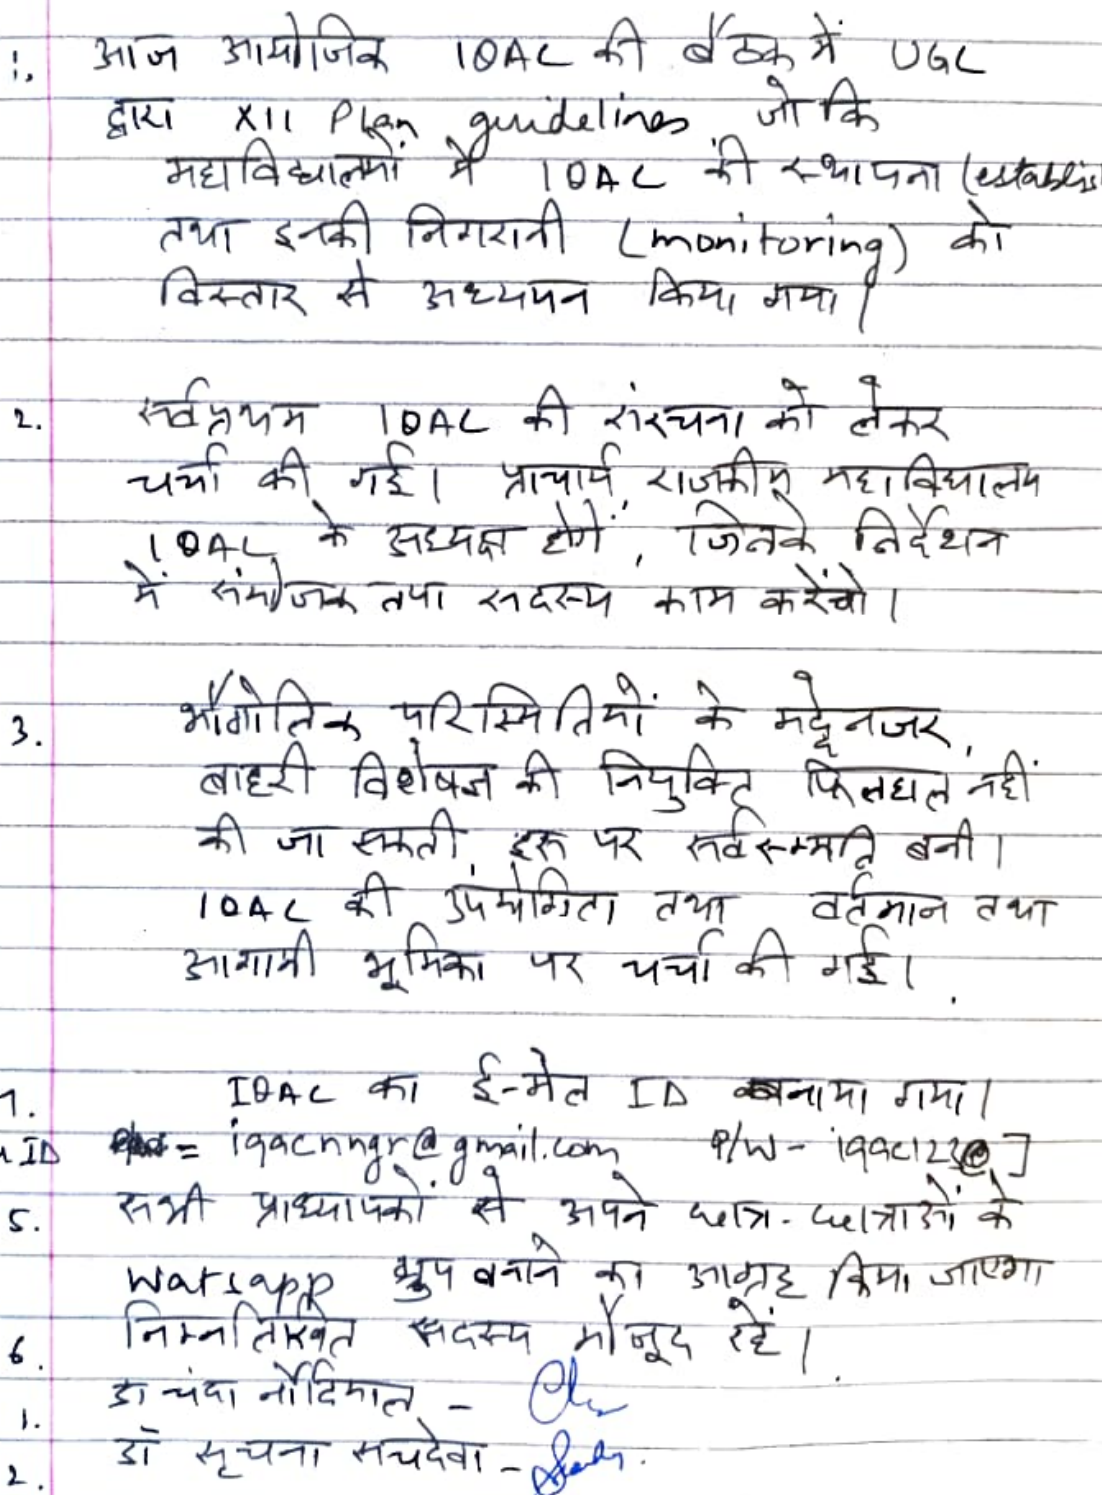 1. आज आयोजिक IQAC की बैठक में UGC
द्वारा XII Plan guidelines, जो कि
महाविद्यालयों में IQAC की स्थापना (establis
तथा इनकी निगरानी (monitoring) को
विस्तार से अध्ययन किया गया।
2. सर्वप्रथम IQAC की संरचना को लेकर
चर्चा की गई। प्राचार्य, राजकीय महाविद्यालय
IQAC के अध्यक्ष होगें, जिनके निर्देशन
में संयोजक तथा सदस्य काम करेंगे।
3. भौगोलिक परिस्थितियों के मद्देनजर,
बाहरी विशेषज्ञ की नियुक्ति फिलहाल नहीं
की जा सकती, इस पर सर्वसम्मति बनी।
IQAC की उपयोगिता तथा वर्तमान तथा
आगामी भूमिका पर चर्चा की गई।
IQAC का ई-मेल ID बनाया गया।
ID = iqacnngr@gmail.com P/W - iqac123@]
5. सभी प्राध्यापकों से अपने छात्र-छात्राओं के
Watsapp ग्रुप बनाने का आग्रह किया जाएगा
6. निम्नलिखित सदस्य मौजूद रहें।
1. डा चंदा नौटियाल -
2. डॉ सृचना सचदेवा -